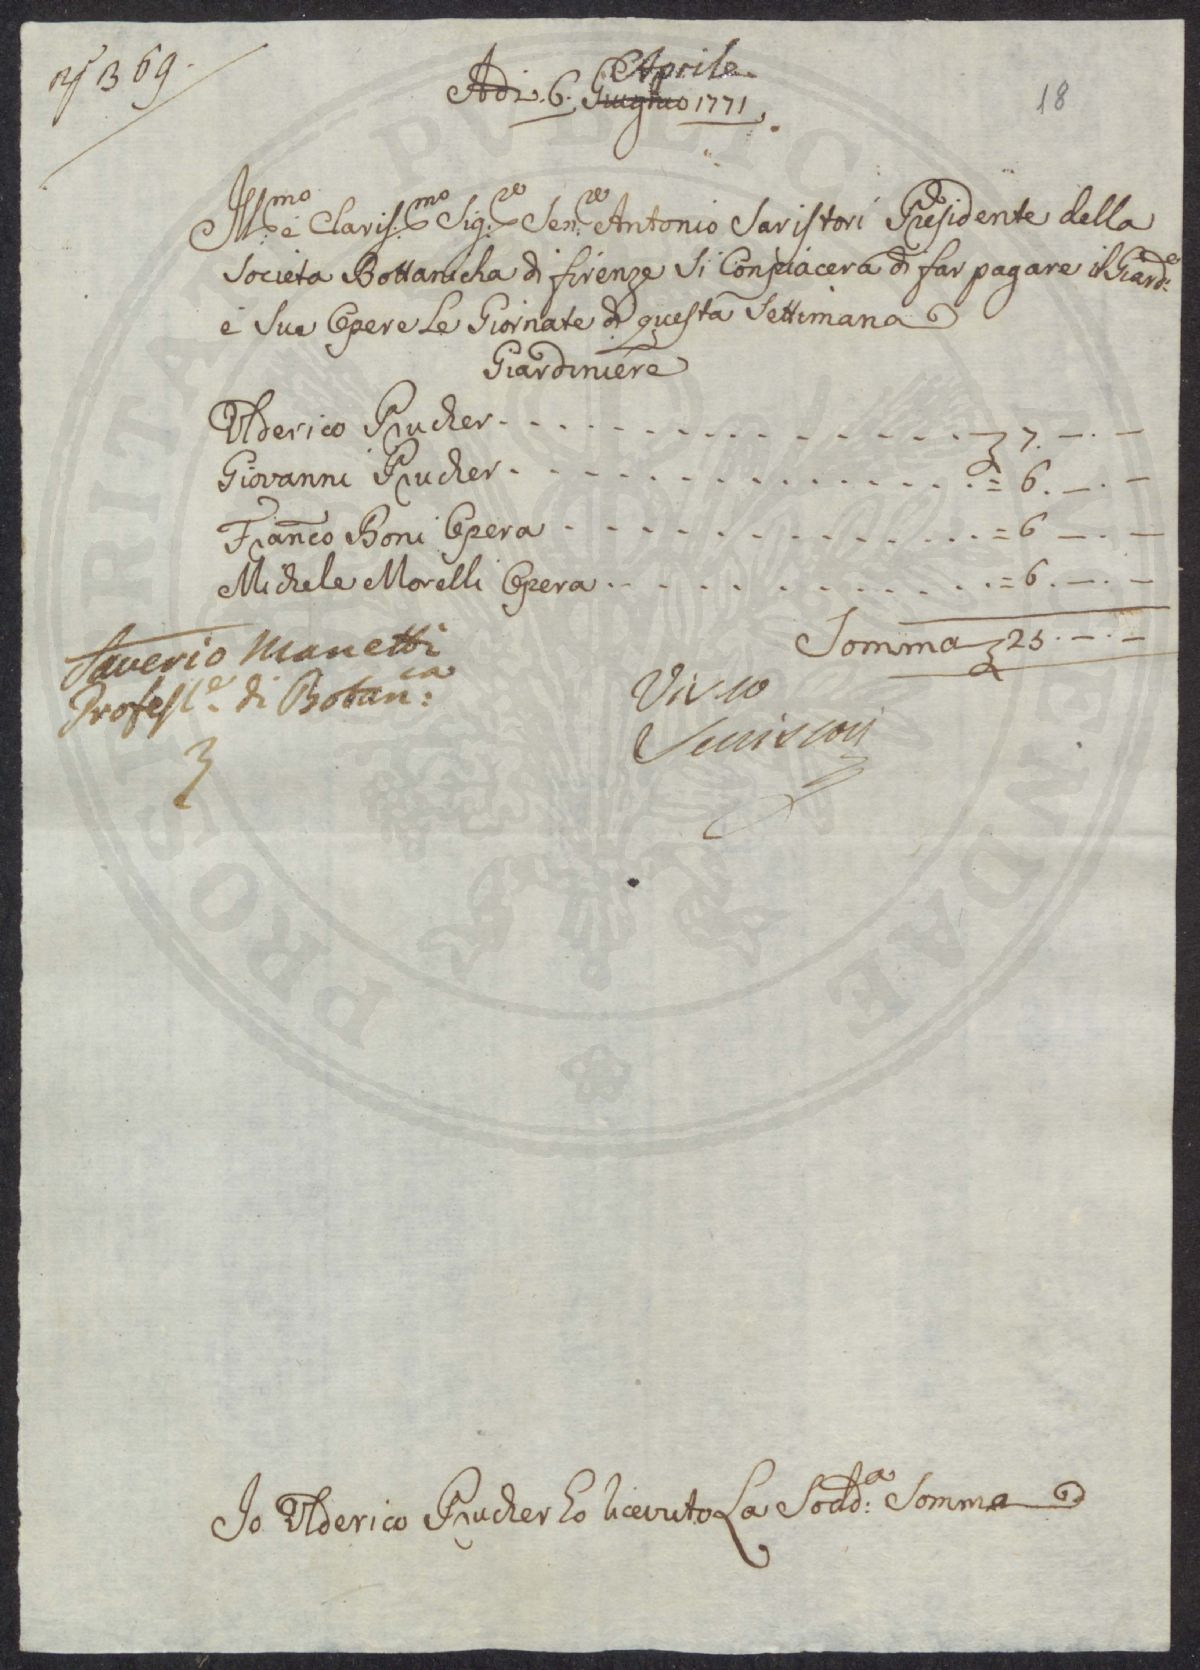 N° 369.
Aprile
Adi. 6. Giugno 1771.
18
Ill:mo e Claris:mo Sig:re Sen:re Antonio Saristori Presidente della
Societa Bottanicha di firenze Si Conpiacerà di far pagare il Giard:e
e Sue Opere Le Giornate di questa Settimana
Giardiniere
Ulderico Prucher - - - - - - - - - - - - - - - - 7. —. —
Giovanni Prucher - - - - - - - - - - - - - - - = 6. —. —
Franco Boni Opera - - - - - - - - - - - - - = 6 —. —
Michele Morelli Opera - - - - - - - - - - - = 6. —. —
Somma 25. —. —
Saverio Manetti
Profess:e di Botan:ca
Visto
Serristori
Io Ulderico Prucher ho Ricevuto La Sodd:a Somma
PROSPERITATI PUBLICAE AUGENDAE